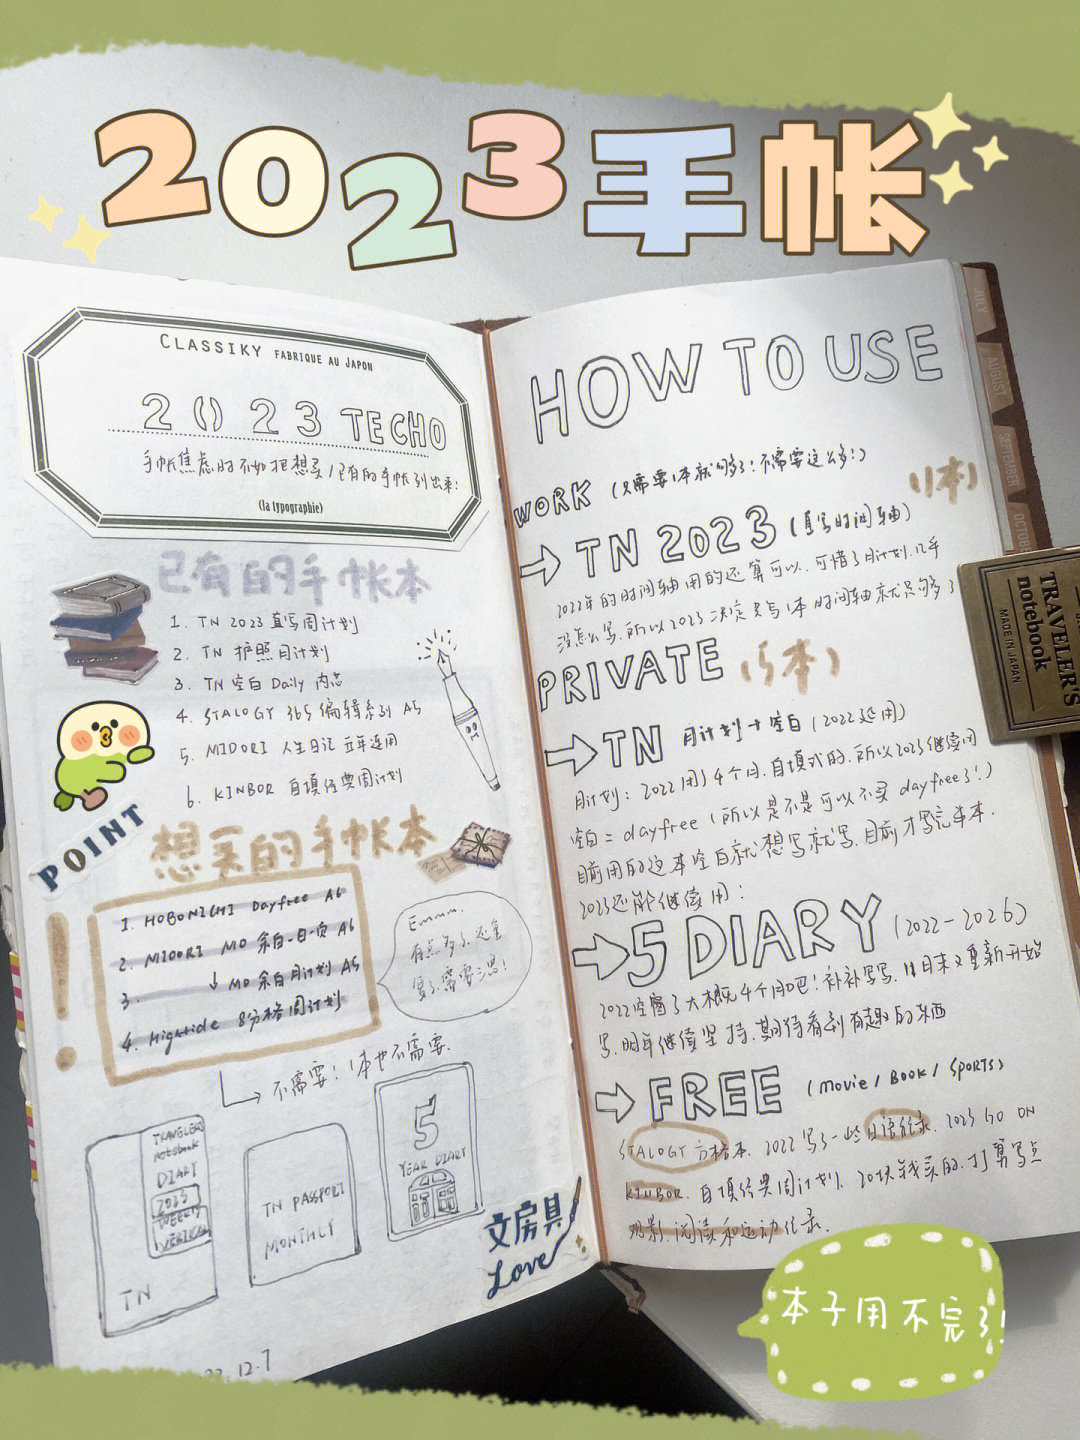 2023手帐
CLASSIKY FABRIQUE AU JAPON
2023 TECHO
手帐焦虑时不如把想买/已有的手帐列出来:
(la typographie)
已有的手帐本
1. TN 2023 直写周计划
2. TN 护照月计划
3. TN 空白 Daily 内芯
4. STALOGY 365 编辑系列 A5
5. MIDORI 人生日记 五年连用
6. KINBOR 自填经典周计划
POINT
想买的手帐本
1. HOBONICHI Dayfree A6
2. MIDORI MD 余白一日一页 A6
3. ↓ MD 余白月计划 A5
4. Hightide 8分格周计划
Emmm.
有点多了.还重
复了.需要三思!
不需要!1本也不需要.
TRAVELER'S
notebook
DIARY
2023
WEEKLY
VERTICAL
TN
TN PASSPORT
MONTHLY
5
YEAR DIARY
文房具
Love
22.12.7
HOW TO USE
WORK (只需要1本就够了!不需要这么多!)
(1本)
→TN 2023 (直写时间轴)
2022年的时间轴用的还算可以.可惜了月计划.几乎
没怎么写.所以2023决定只写1本时间轴就足够了
PRIVATE (5本)
→TN 月计划+空白 (2022延用)
月计划: 2022用了4个月.自填式的.所以2023继续用
空白=dayfree (所以是不是可以不买dayfree了!)
目前用的这本空白就想写就写.目前才写完半本.
2023还能继续用:
→5 DIARY (2022-2026)
2022空窗了大概4个月吧!补补写写.11月末又重新开始
写.明年继续坚持.期待看到有趣的东西
→FREE (MOVIE/BOOK/SPORTS)
STALOGY 方格本. 2022写了一些日语纪录. 2023 GO ON
KINBOR. 自填经典周计划. 20块钱买的.打算写点
观影.阅读和运动纪录.
JULY
AUGUST
SEPTEMBER
OCTOBER
TRAVELER'S
notebook
MADE IN JAPAN
本子用不完了!